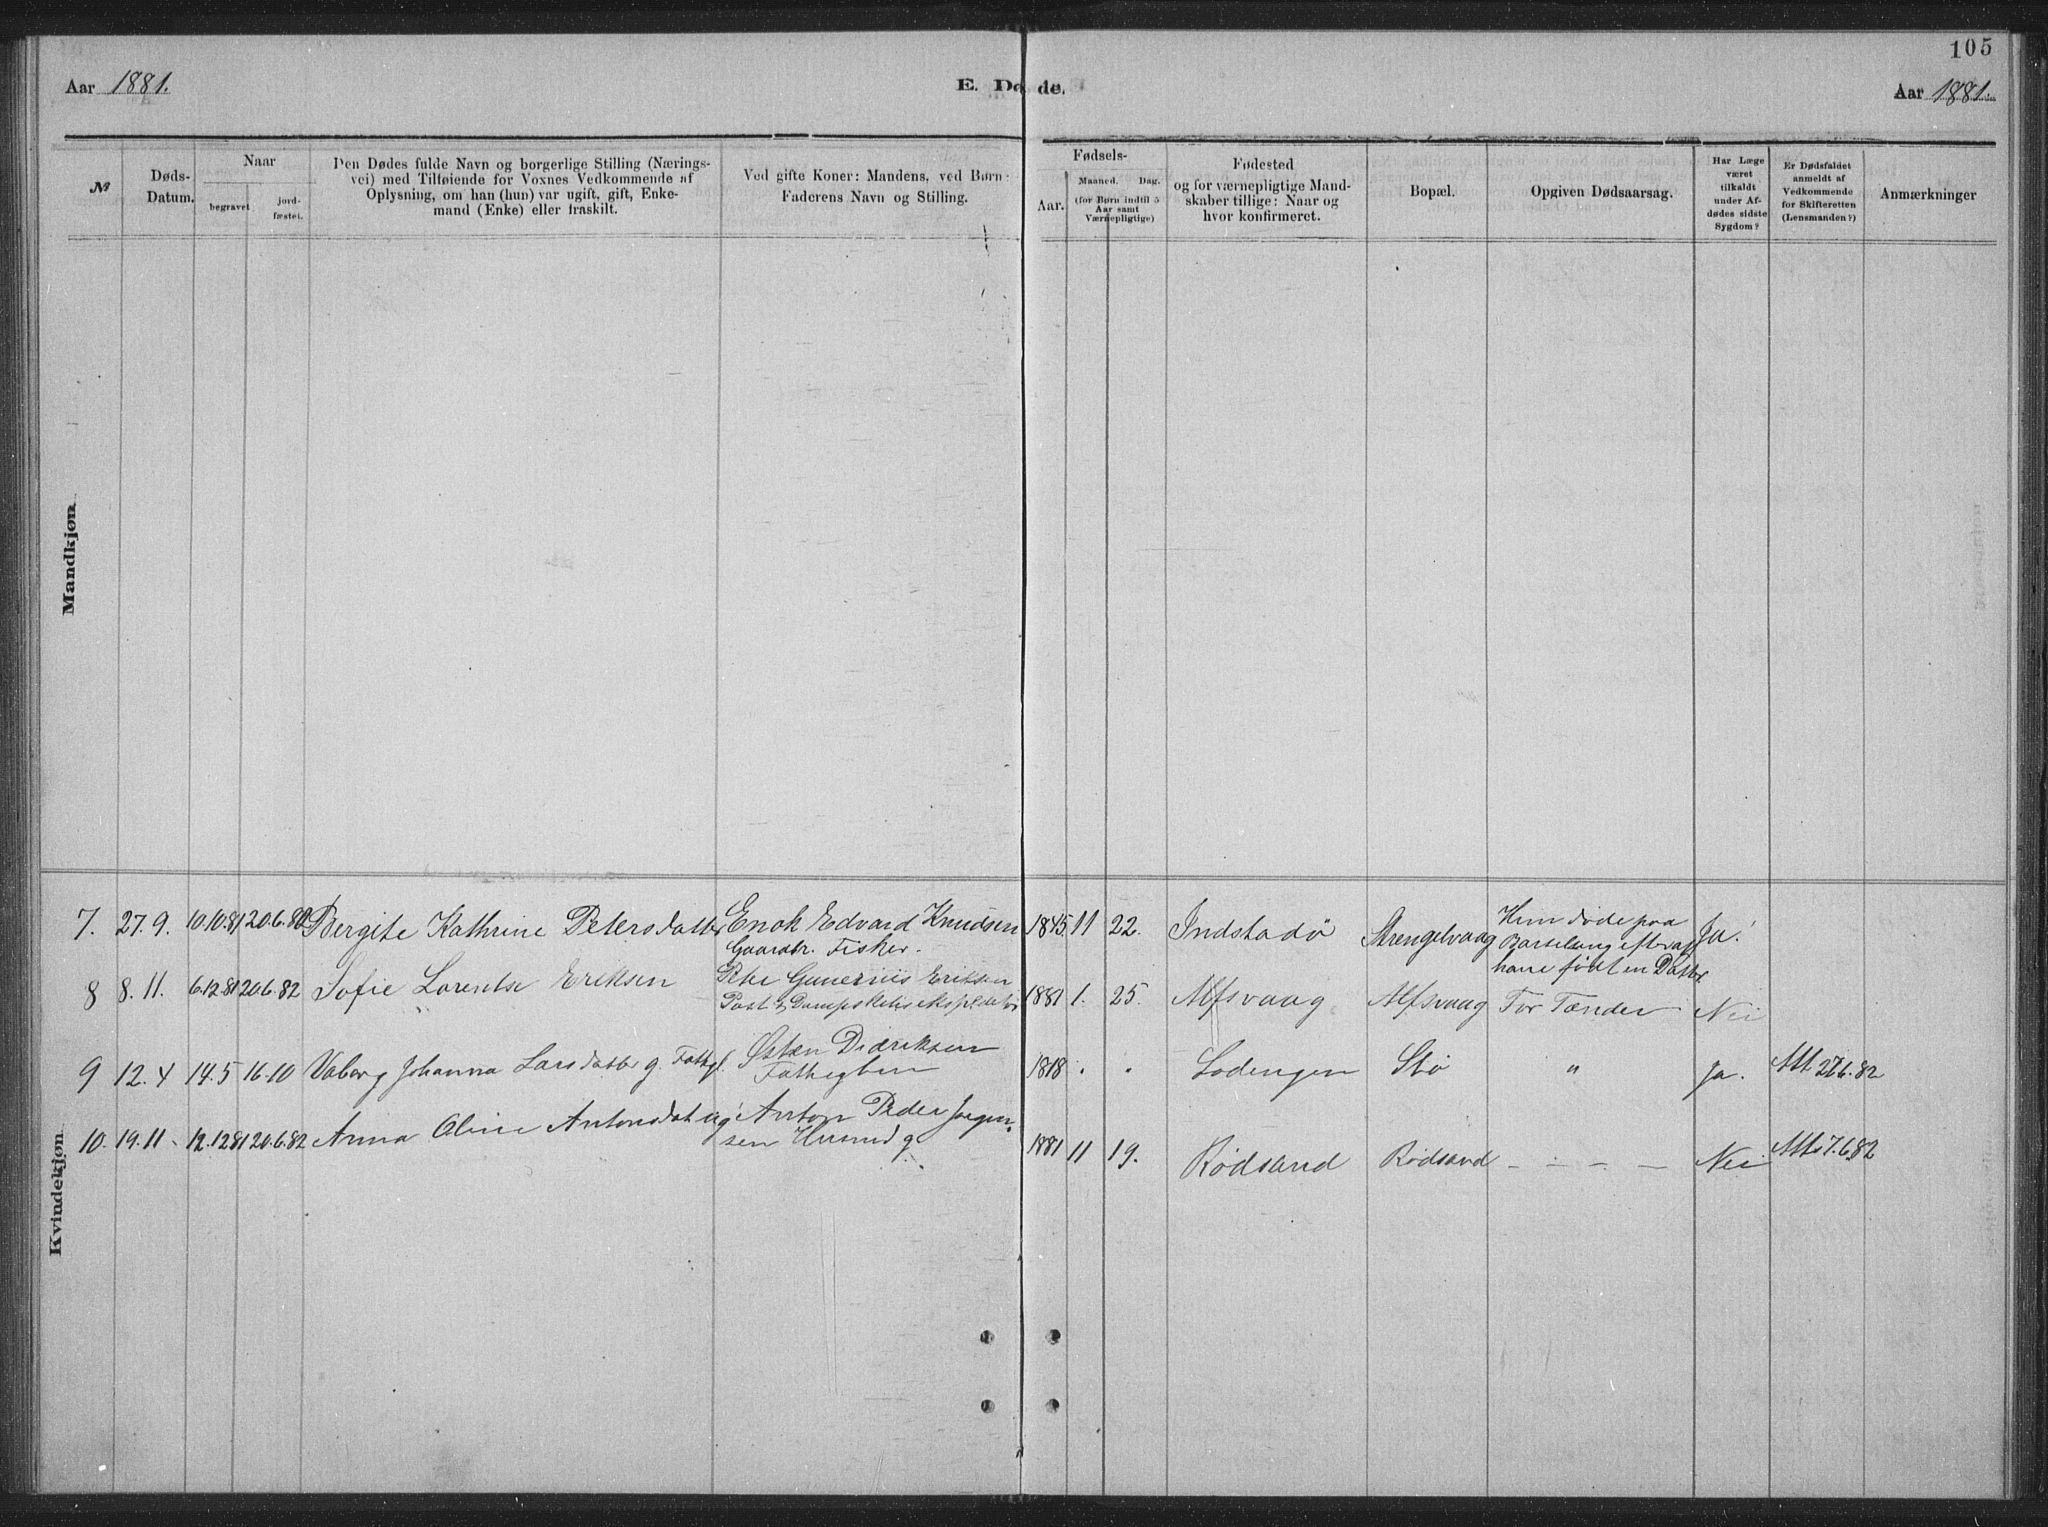 105
Aar 1881.
E. Døde.
Aar 1881.
№
Døds-Datum.
Naar
begravet
jord-fæstet.
Den Dødes fulde Navn og borgerlige Stilling (Nærings-
vei) med Tilføiende for Voxnes Vedkommende af
Oplysning, om han (hun) var ugift, gift, Enke-
mand (Enke) eller fraskilt.
Ved gifte Koner: Mandens, ved Børn:
Faderens Navn og Stilling.
Fødsels-
Aar.
Maaned. Dag.
(for Børn indtil 5
Aar samt
Værnepligtige)
Fødested
og for værnepligtige Mand-
skaber tillige: Naar og
hvor konfirmeret.
Bopæl.
Opgiven Dødsaarsag.
Har Læge
været
tilkaldt
under Af-
dødes sidste
Sygdom?
Er Dødsfaldet
anmeldt af
Vedkommende
for Skifteretten
(Lensmanden?)
Anmærkninger
Mandkjøn
Kvindekjøn
7. 27.9. 10.10.81 20.6.82 Bergite Kathrine Petersdatter Enok Edvard Knudsen 1845 11 22. Indstadø Strengelvaag Hun døde paa Ja.
Gaardbr. Fisker. Barselseng efter at
have født en Datter
8 8.11. 6.12.81 20.6.82 Sofie Lorentse Eriksen Peter Gunerius Eriksen 1881 1. 25. Alfsvaag Alfsvaag For Tænder Nei
Post & Dampskibs
9 12.4 14.5 16.10 Valborg Johanna Larsdatter g. Fattgl. Østen Didriksen 1818 " " Lodengen Stø " Ja. Att. 27.6.82
10. 19.11 12.12 81 20.6.82 Anna Oline Antonsdat ug Anton Peder Jørgen- 1881 11 19. Rødsand Rødsand - - - - Nei Att. 7.6.82
sen Husmd g